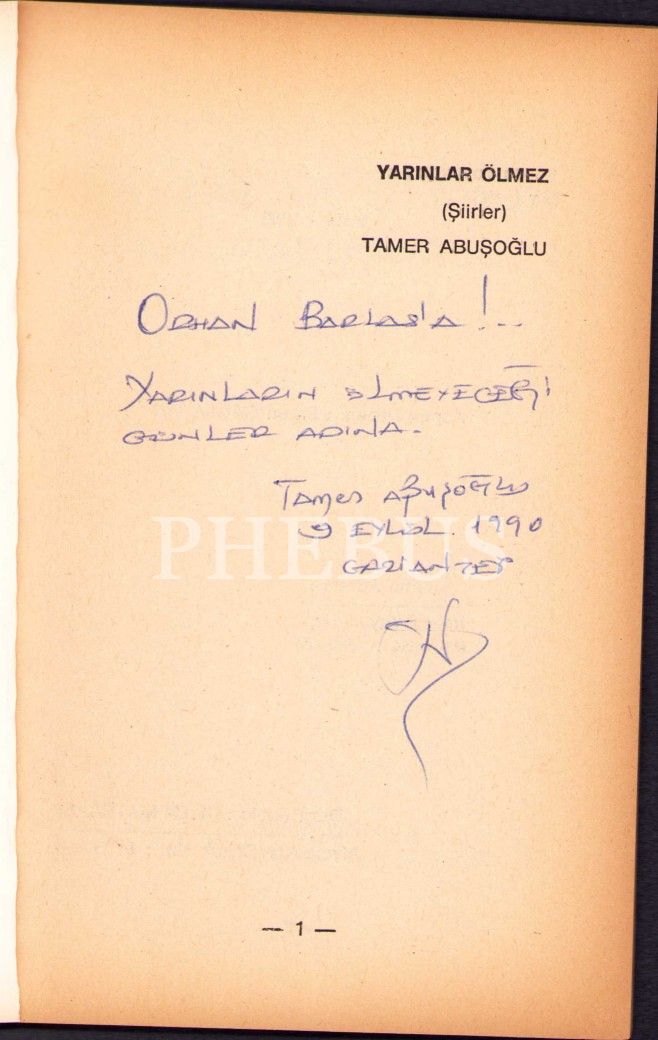 YARINLAR ÖLMEZ
(Şiirler)
TAMER ABUŞOĞLU
ORHAN BARLAS'A !...
YARINLARIN ÖLMEYECEĞİ
GÜNLER ADINA.
Tamer ABUŞOĞLU
9 EYLÜL 1990
GAZİANTEP
PHEBUS
— 1 —